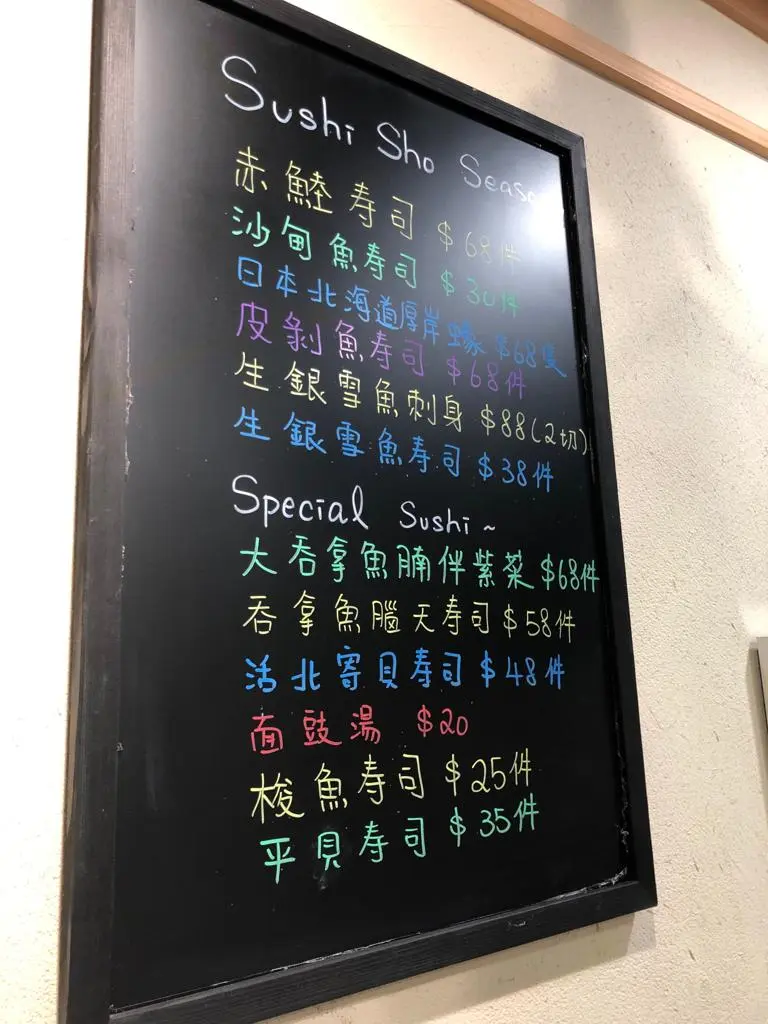 Sushi Sho Seaso
赤鯥寿司 $68件
沙甸魚寿司 $30件
日本北海道厚岸蠔 $68隻
皮剝魚寿司 $68件
生銀雪魚刺身 $88(2切)
生銀雪魚寿司 $38件
Special Sushi~
大吞拿魚腩伴紫菜 $68件
吞拿魚腦天寿司 $58件
活北寄貝寿司 $48件
面豉湯 $20
梭魚寿司 $25件
平貝寿司 $35件